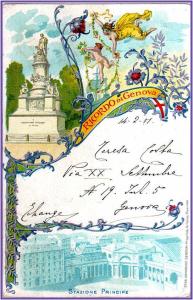 RICORDO DI GENOVA
14-2-11
Teresa Costa
Via XX Settembre
N 19 Int. 5
Echange Genova
STAZIONE PRINCIPE